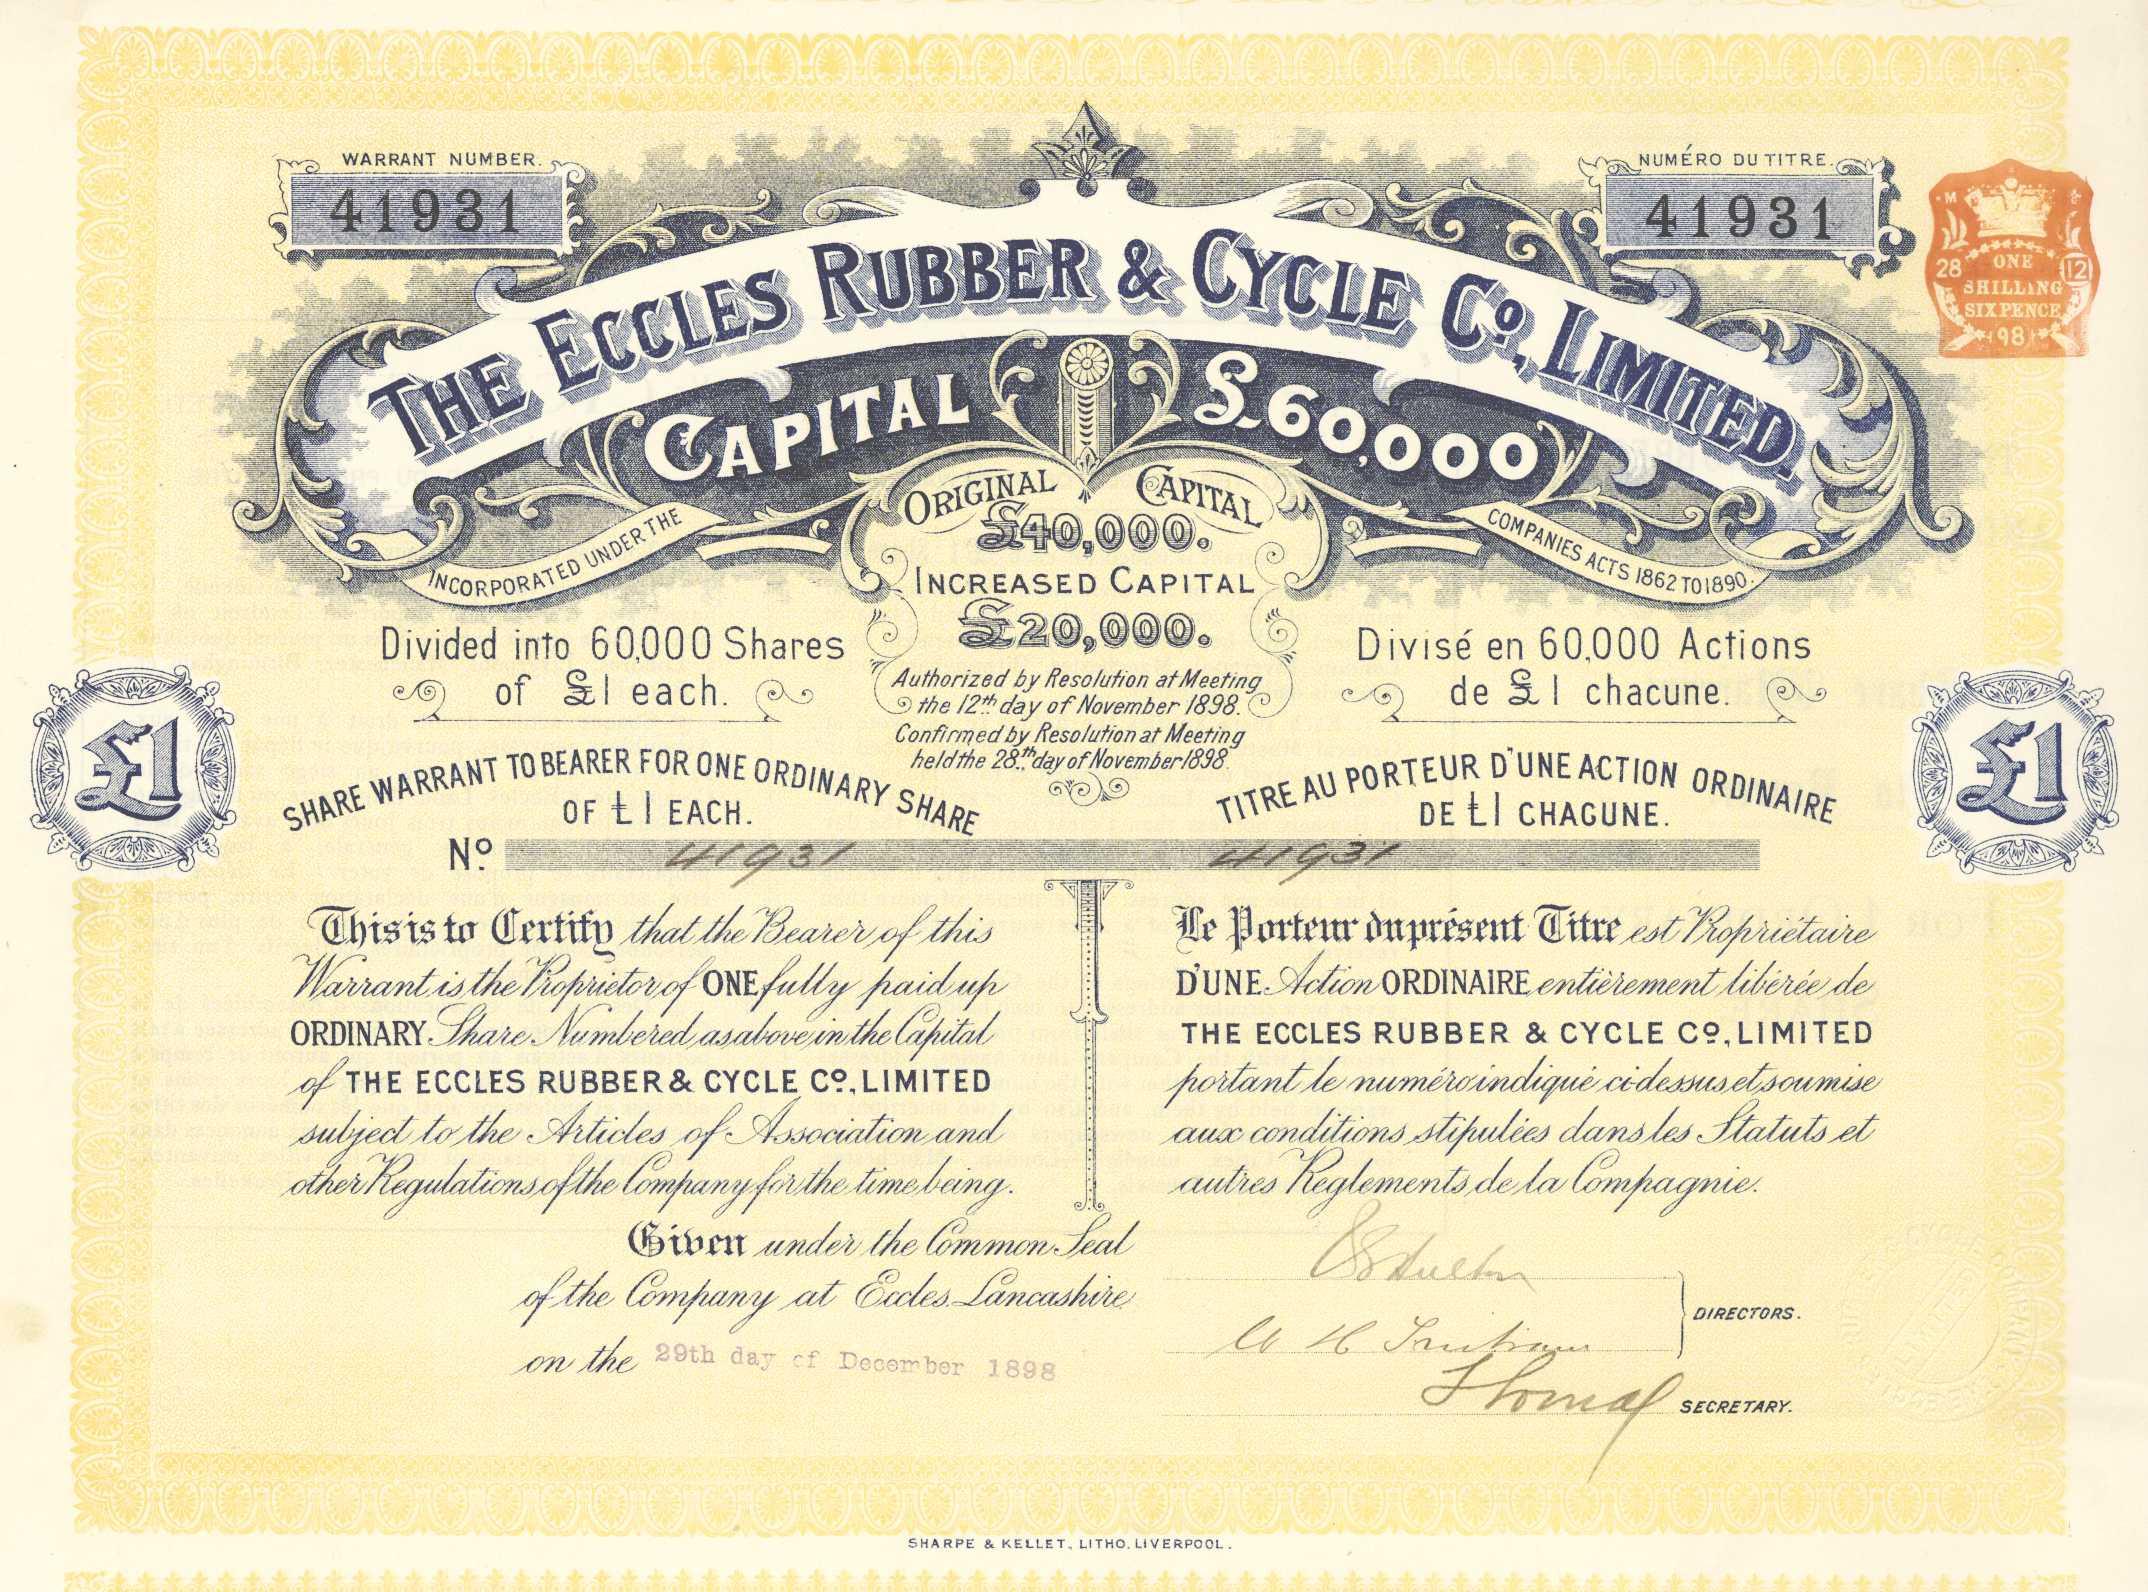 WARRANT NUMBER.
41931
NUMÉRO DU TITRE.
41931
M
28 ONE 12
SHILLING
SIXPENCE
98
THE ECCLES RUBBER & CYCLE Co, LIMITED.
CAPITAL £60,000
INCORPORATED UNDER THE COMPANIES ACTS 1862 TO 1890.
ORIGINAL CAPITAL
£40,000.
INCREASED CAPITAL
£20,000.
Authorized by Resolution at Meeting
the 12th day of November 1898.
Confirmed by Resolution at Meeting
held the 28th day of November 1898.
Divided into 60,000 Shares
of £1 each.
Divisé en 60,000 Actions
de £1 chacune.
£1
£1
SHARE WARRANT TO BEARER FOR ONE ORDINARY SHARE
OF £1 EACH.
TITRE AU PORTEUR D'UNE ACTION ORDINAIRE
DE £1 CHACUNE.
No. 41931 41931
This is to Certify that the Bearer of this
Warrant is the Proprietor of ONE fully paid up
ORDINARY Share Numbered as above in the Capital
of THE ECCLES RUBBER & CYCLE Co., LIMITED
subject to the Articles of Association and
other Regulations of the Company for the time being.
Le Porteur du présent Titre est Propriétaire
D'UNE Action ORDINAIRE entièrement libérée de
THE ECCLES RUBBER & CYCLE Co., LIMITED
portant le numéro indiqué ci-dessus et soumise
aux conditions stipulées dans les Statuts et
autres Reglements de la Compagnie.
Given under the Common Seal
of the Company at Eccles Lancashire
on the 29th day of December 1898
DIRECTORS.
W H
SECRETARY.
SHARPE & KELLET, LITHO. LIVERPOOL.